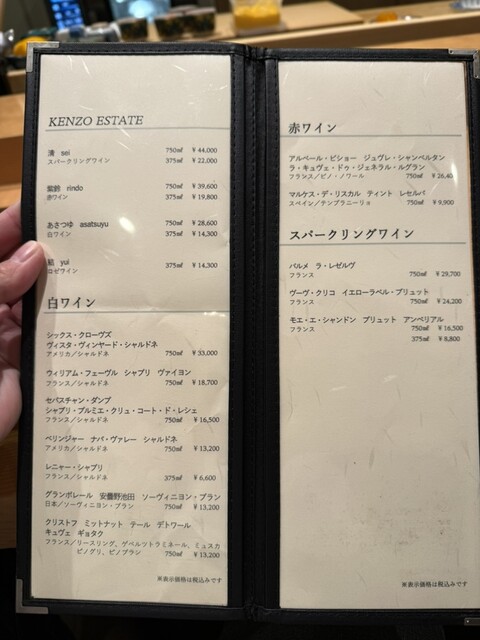 KENZO ESTATE
清 sei 750㎖ ¥44,000
スパークリングワイン 375㎖ ¥22,000
紫鈴 rindo 750㎖ ¥39,600
赤ワイン 375㎖ ¥19,800
あさつゆ asatsuyu 750㎖ ¥28,600
白ワイン 375㎖ ¥14,300
結 yui 375㎖ ¥14,300
ロゼワイン
白ワイン
シックス・クローヴズ
ヴィスタ・ヴィンヤード・シャルドネ
アメリカ/シャルドネ 750㎖ ¥33,000
ウィリアム・フェーヴル シャブリ ヴァイヨン
フランス/シャルドネ 750㎖ ¥18,700
セバスチャン・ダンプ
シャブリ・プルミエ・クリュ・コート・ド・レシェ
フランス/シャルドネ 750㎖ ¥16,500
ベリンジャー ナパ・ヴァレー シャルドネ
アメリカ/シャルドネ 750㎖ ¥13,200
レニャー・シャブリ
フランス/シャルドネ 375㎖ ¥6,600
グランポレール 安曇野池田 ソーヴィニヨン・ブラン
日本/ソーヴィニヨン・ブラン 750㎖ ¥13,200
クリストフ ミットナット テール デトワール
キュヴェ ギョタク
フランス/リースリング、ゲベルツトラミネール、ミュスカ
ピノグリ、ピノブラン 750㎖ ¥13,200
※表示価格は税込みです
赤ワイン
アルベール・ビショー ジュヴレ・シャンベルタン
ラ・キュヴェ・ドゥ・ジェネラル・ルグラン
フランス/ピノ・ノワール 750㎖
マルケス・デ・リスカル ティント レセルバ
スペイン/テンプラニーリョ 750㎖ ¥9,900
スパークリングワイン
パルメ ラ・レゼルヴ
フランス 750㎖ ¥29,700
ヴーヴ・クリコ イエローラベル・ブリュット
フランス 750㎖ ¥24,200
モエ・エ・シャンドン ブリュット アンペリアル
フランス 750㎖ ¥16,500
375㎖ ¥8,800
※表示価格は税込みです